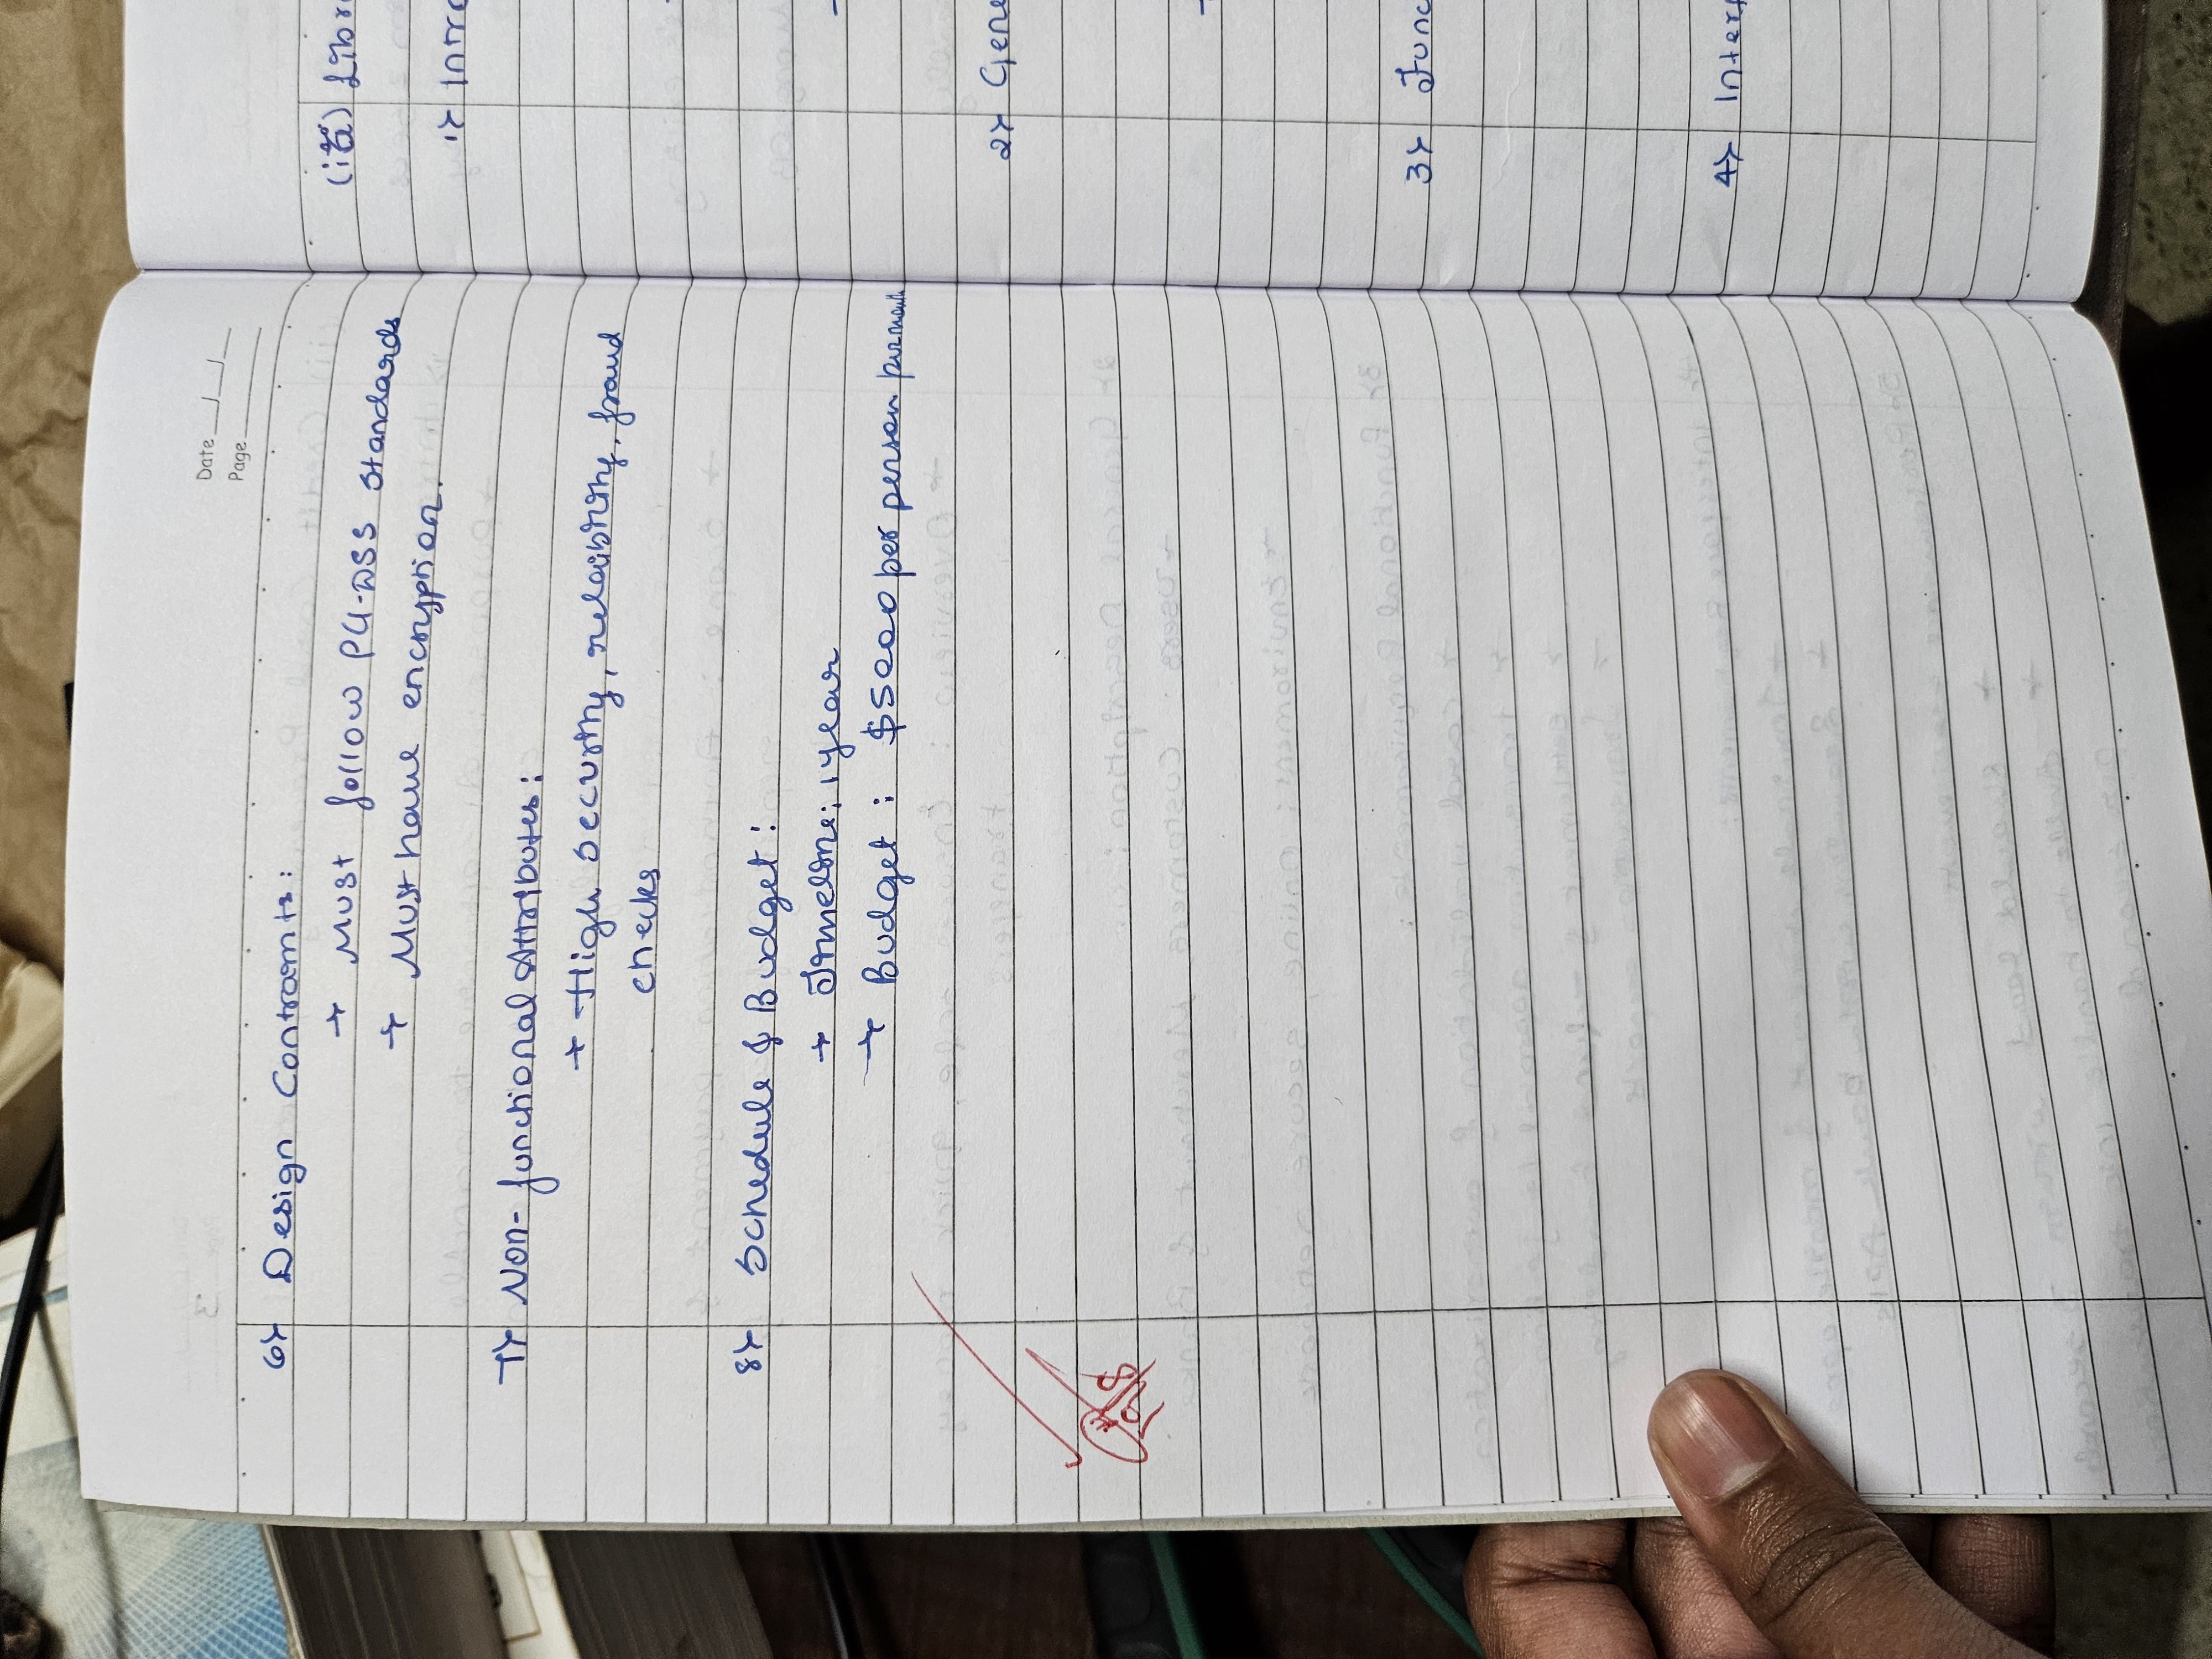 Date
Page
6> Design Contraints:
→ Must follow PCI-DSS standards
→ Must have encryption.
7> Non-functional Attributes:
→ High security, reliability, fraud
checks
8> Schedule & Budget:
→ Timeline: 1 year
→ Budget: $5000 per person per month
19/8
(iii) Libr
1> Intro
2> Gene
3> Func
4> Interf